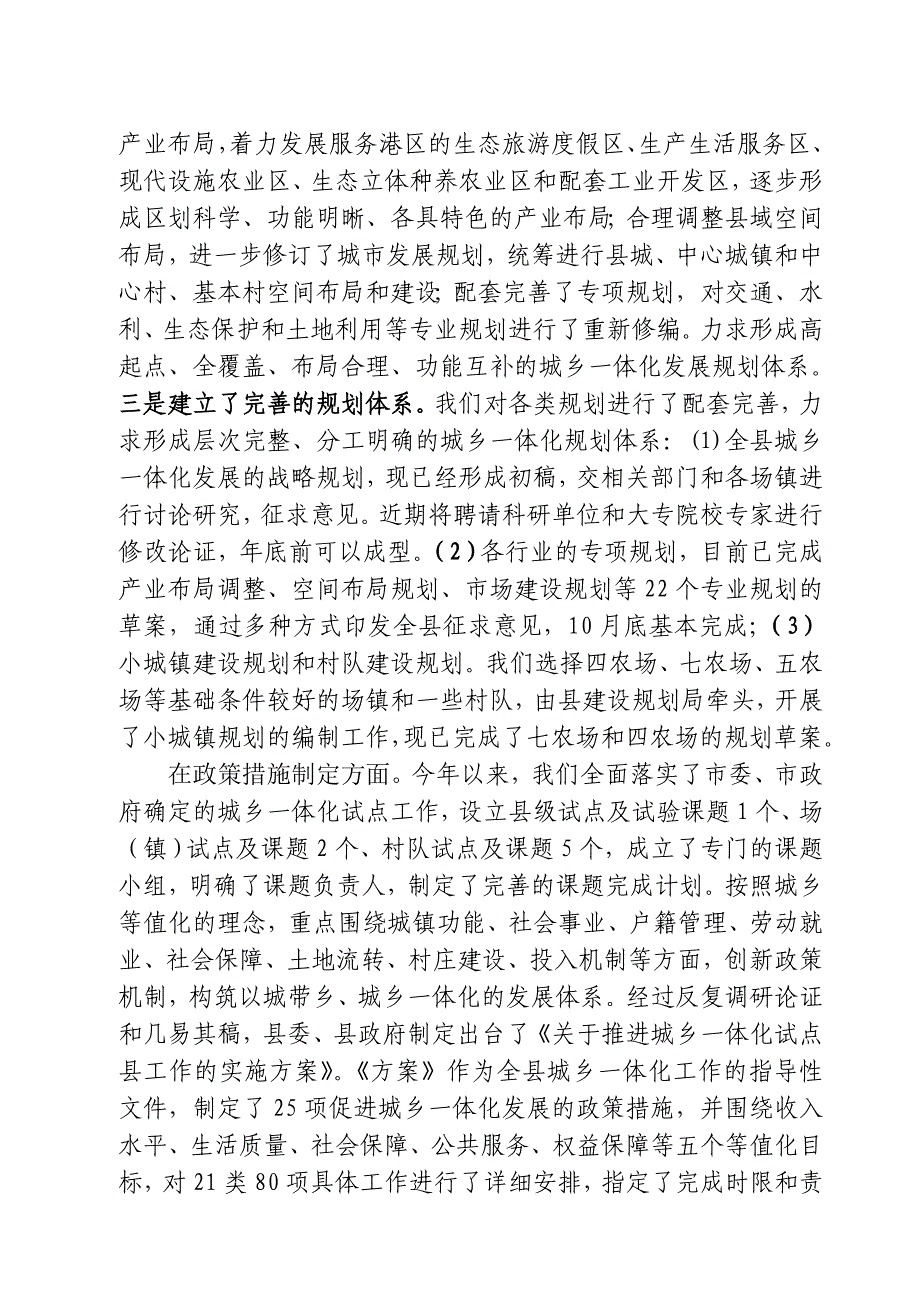 产业布局，着力发展服务港区的生态旅游度假区、生产生活服务区、
现代设施农业区、生态立体种养农业区和配套工业开发区，逐步形
成区划科学、功能明晰、各具特色的产业布局；合理调整县域空间
布局，进一步修订了城市发展规划，统筹进行县城、中心城镇和中
心村、基本村空间布局和建设；配套完善了专项规划，对交通、水
利、生态保护和土地利用等专业规划进行了重新修编。力求形成高
起点、全覆盖、布局合理、功能互补的城乡一体化发展规划体系。
三是建立了完善的规划体系。我们对各类规划进行了配套完善，力
求形成层次完整、分工明确的城乡一体化规划体系：(1)全县城乡
一体化发展的战略规划，现已经形成初稿，交相关部门和各场镇进
行讨论研究，征求意见。近期将聘请科研单位和大专院校专家进行
修改论证，年底前可以成型。（2）各行业的专项规划，目前已完成
产业布局调整、空间布局规划、市场建设规划等 22 个专业规划的
草案，通过多种方式印发全县征求意见，10 月底基本完成；（3）
小城镇建设规划和村队建设规划。我们选择四农场、七农场、五农
场等基础条件较好的场镇和一些村队，由县建设规划局牵头，开展
了小城镇规划的编制工作，现已完成了七农场和四农场的规划草案。
在政策措施制定方面。今年以来，我们全面落实了市委、市政
府确定的城乡一体化试点工作，设立县级试点及试验课题 1 个、场
（镇）试点及课题 2 个、村队试点及课题 5 个，成立了专门的课题
小组，明确了课题负责人，制定了完善的课题完成计划。按照城乡
等值化的理念，重点围绕城镇功能、社会事业、户籍管理、劳动就
业、社会保障、土地流转、村庄建设、投入机制等方面，创新政策
机制，构筑以城带乡、城乡一体化的发展体系。经过反复调研论证
和几易其稿，县委、县政府制定出台了《关于推进城乡一体化试点
县工作的实施方案》。《方案》作为全县城乡一体化工作的指导性
文件，制定了 25 项促进城乡一体化发展的政策措施，并围绕收入
水平、生活质量、社会保障、公共服务、权益保障等五个等值化目
标，对 21 类 80 项具体工作进行了详细安排，指定了完成时限和责